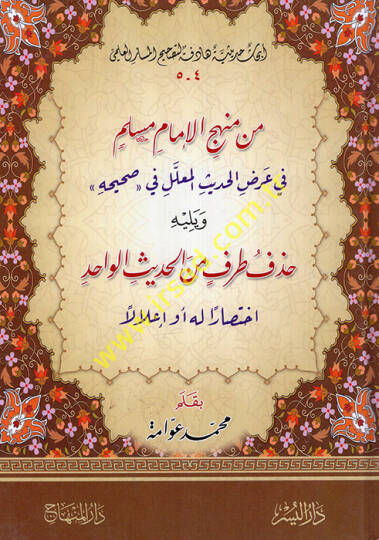 أبحاث حديثية هادفة لتصحيح المسار العلمي
٤ - ٥
من منهج الإمام مسلم
في عرض الحديث المعلل في «صحيحه»
ويليه
حذف طرف من الحديث الواحد
اختصارًا له أو إعلالاً
بقلم
محمد عوامة
دار المنهاج
دار اليسر